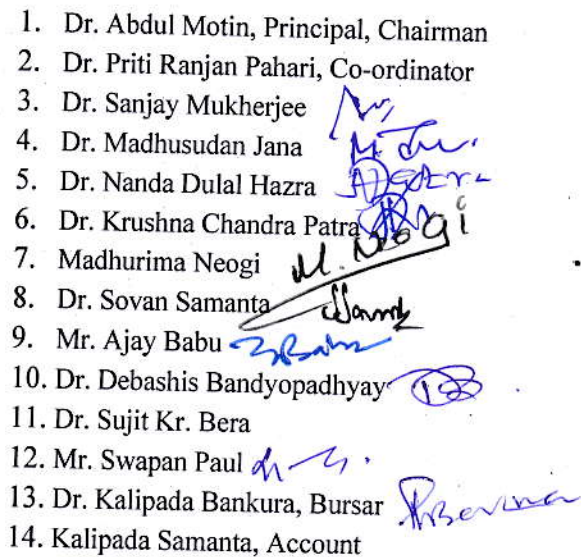 1. Dr. Abdul Motin, Principal, Chairman
2. Dr. Priti Ranjan Pahari, Co-ordinator
3. Dr. Sanjay Mukherjee
4. Dr. Madhusudan Jana
5. Dr. Nanda Dulal Hazra
6. Dr. Krushna Chandra Patra
7. Madhurima Neogi M. Neogi
8. Dr. Sovan Samanta
9. Mr. Ajay Babu
10. Dr. Debashis Bandyopadhyay
11. Dr. Sujit Kr. Bera
12. Mr. Swapan Paul
13. Dr. Kalipada Bankura, Bursar
14. Kalipada Samanta, Account